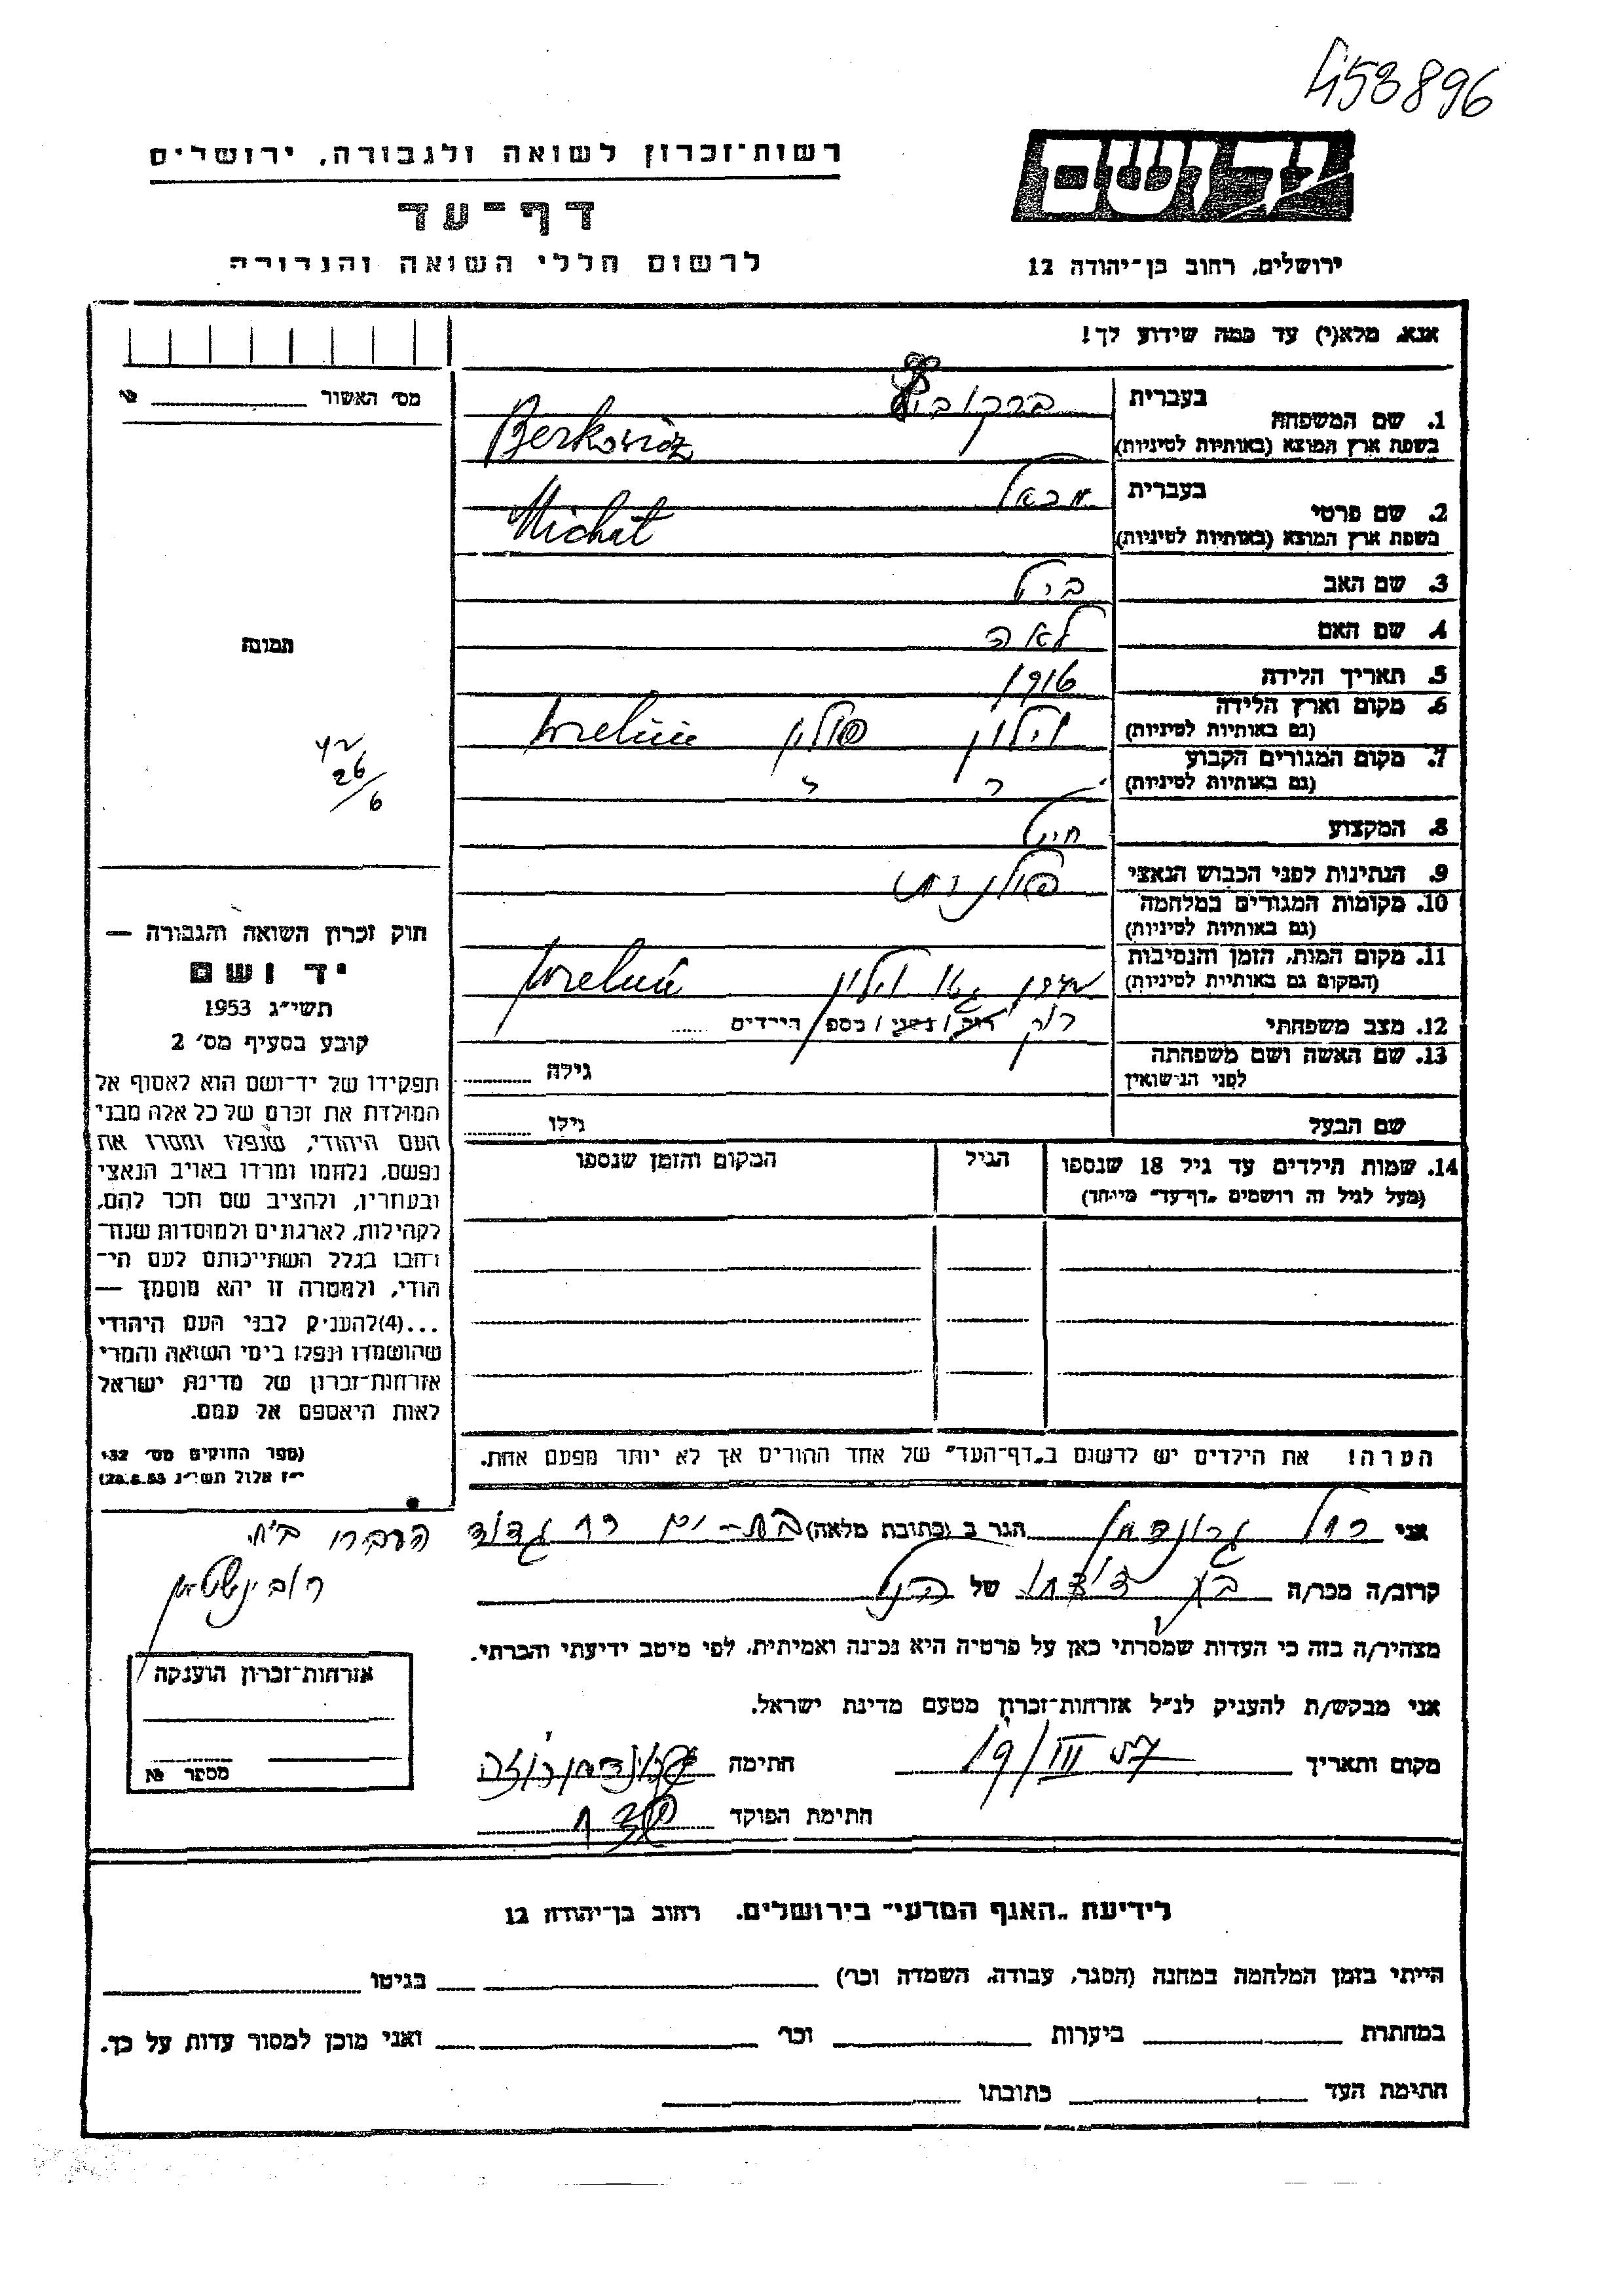 453896
רשות-זכרון לשואה ולגבורה, ירושלים
יד ושם
דף-עד
לרשום חללי השואה והגבורה
ירושלים, רחוב בן-יהודה 12
אנא, מלא(י) עד כמה שידוע לך!
מס׳ האשור
1. שם המשפחה
בעברית
ברקוביץ
בשפת ארץ המוצא (באותיות לטיניות)
Berkowicz
2. שם פרטי
בעברית
מכאל
בשפת ארץ המוצא (באותיות לטיניות)
Michał
3. שם האב
4. שם האם לאה
5. תאריך הלידה 1916
6. מקום וארץ הלידה
(גם באותיות לטיניות)
וילון פולין Wieluń
7. מקום המגורים הקבוע
(גם באותיות לטיניות)
8. המקצוע חייט
9. הנתינות לפני הכבוש הנאצי פולנית
10. מקומות המגורים במלחמה
(גם באותיות לטיניות)
11. מקום המות, הזמן והנסיבות
(המקום גם באותיות לטיניות)
גטו וילון Wieluń
12. מצב משפחתי רוק רוק / נשוי / מספר הילדים
13. שם האשה ושם משפחתה
לפני הנישואין
גילה
שם הבעל
גילו
14. שמות הילדים עד גיל 18 שנספו
(מעל לגיל זה רושמים „דף-עד״ מיוחד)
הגיל
המקום והזמן שנספו
הערה! את הילדים יש לרשום ב„דף-העד״ של אחד ההורים אך לא יותר מפעם אחת.
תמונה
26/6
חוק זכרון השואה והגבורה —
יד ושם
תשי״ג 1953
קובע בסעיף מס׳ 2
תפקידו של יד-ושם הוא לאסוף אל
המולדת את זכרם של כל אלה מבני
העם היהודי, שנפלו ומסרו את
נפשם, נלחמו ומרדו באויב הנאצי
ובעוזריו, ולהציב שם וזכר להם,
לקהילות, לארגונים ולמוסדות שנח-
רבו בגלל השתייכותם לעם הי-
הודי, ולמטרה זו יהא מוסמך —
...(4)להעניק לבני העם היהודי
שהושמדו ונפלו בימי השואה והמרי
אזרחות-זכרון של מדינת ישראל
לאות היאספם אל עמם.
(ספר החוקים מס׳ 132
י״ז אלול תשי״ג 28.8.53)
אני רחל גרונדמן הגר ב (כתובת מלאה) בת-ים רח גדוד
העברי
קרוב/ה מכר/ה בת דודתו של הנ״ל
מצהיר/ה בזה כי העדות שמסרתי כאן על פרטיה היא נכונה ואמיתית, לפי מיטב ידיעתי והכרתי.
אני מבקש/ת להעניק לנ״ל אזרחות-זכרון מטעם מדינת ישראל.
מקום ותאריך 19/III 57 חתימה
חתימת הפוקד
רובינשטיין
אזרחות-זכרון הוענקה
מספר №
לידיעת „האגף המדעי״ בירושלים, רחוב בן-יהודה 12
הייתי בזמן המלחמה במחנה (הסגר, עבודה, השמדה וכו׳) בגיטו
במחתרת ביערות וכו׳ ואני מוכן למסור עדות על כך.
חתימת העד כתובתו